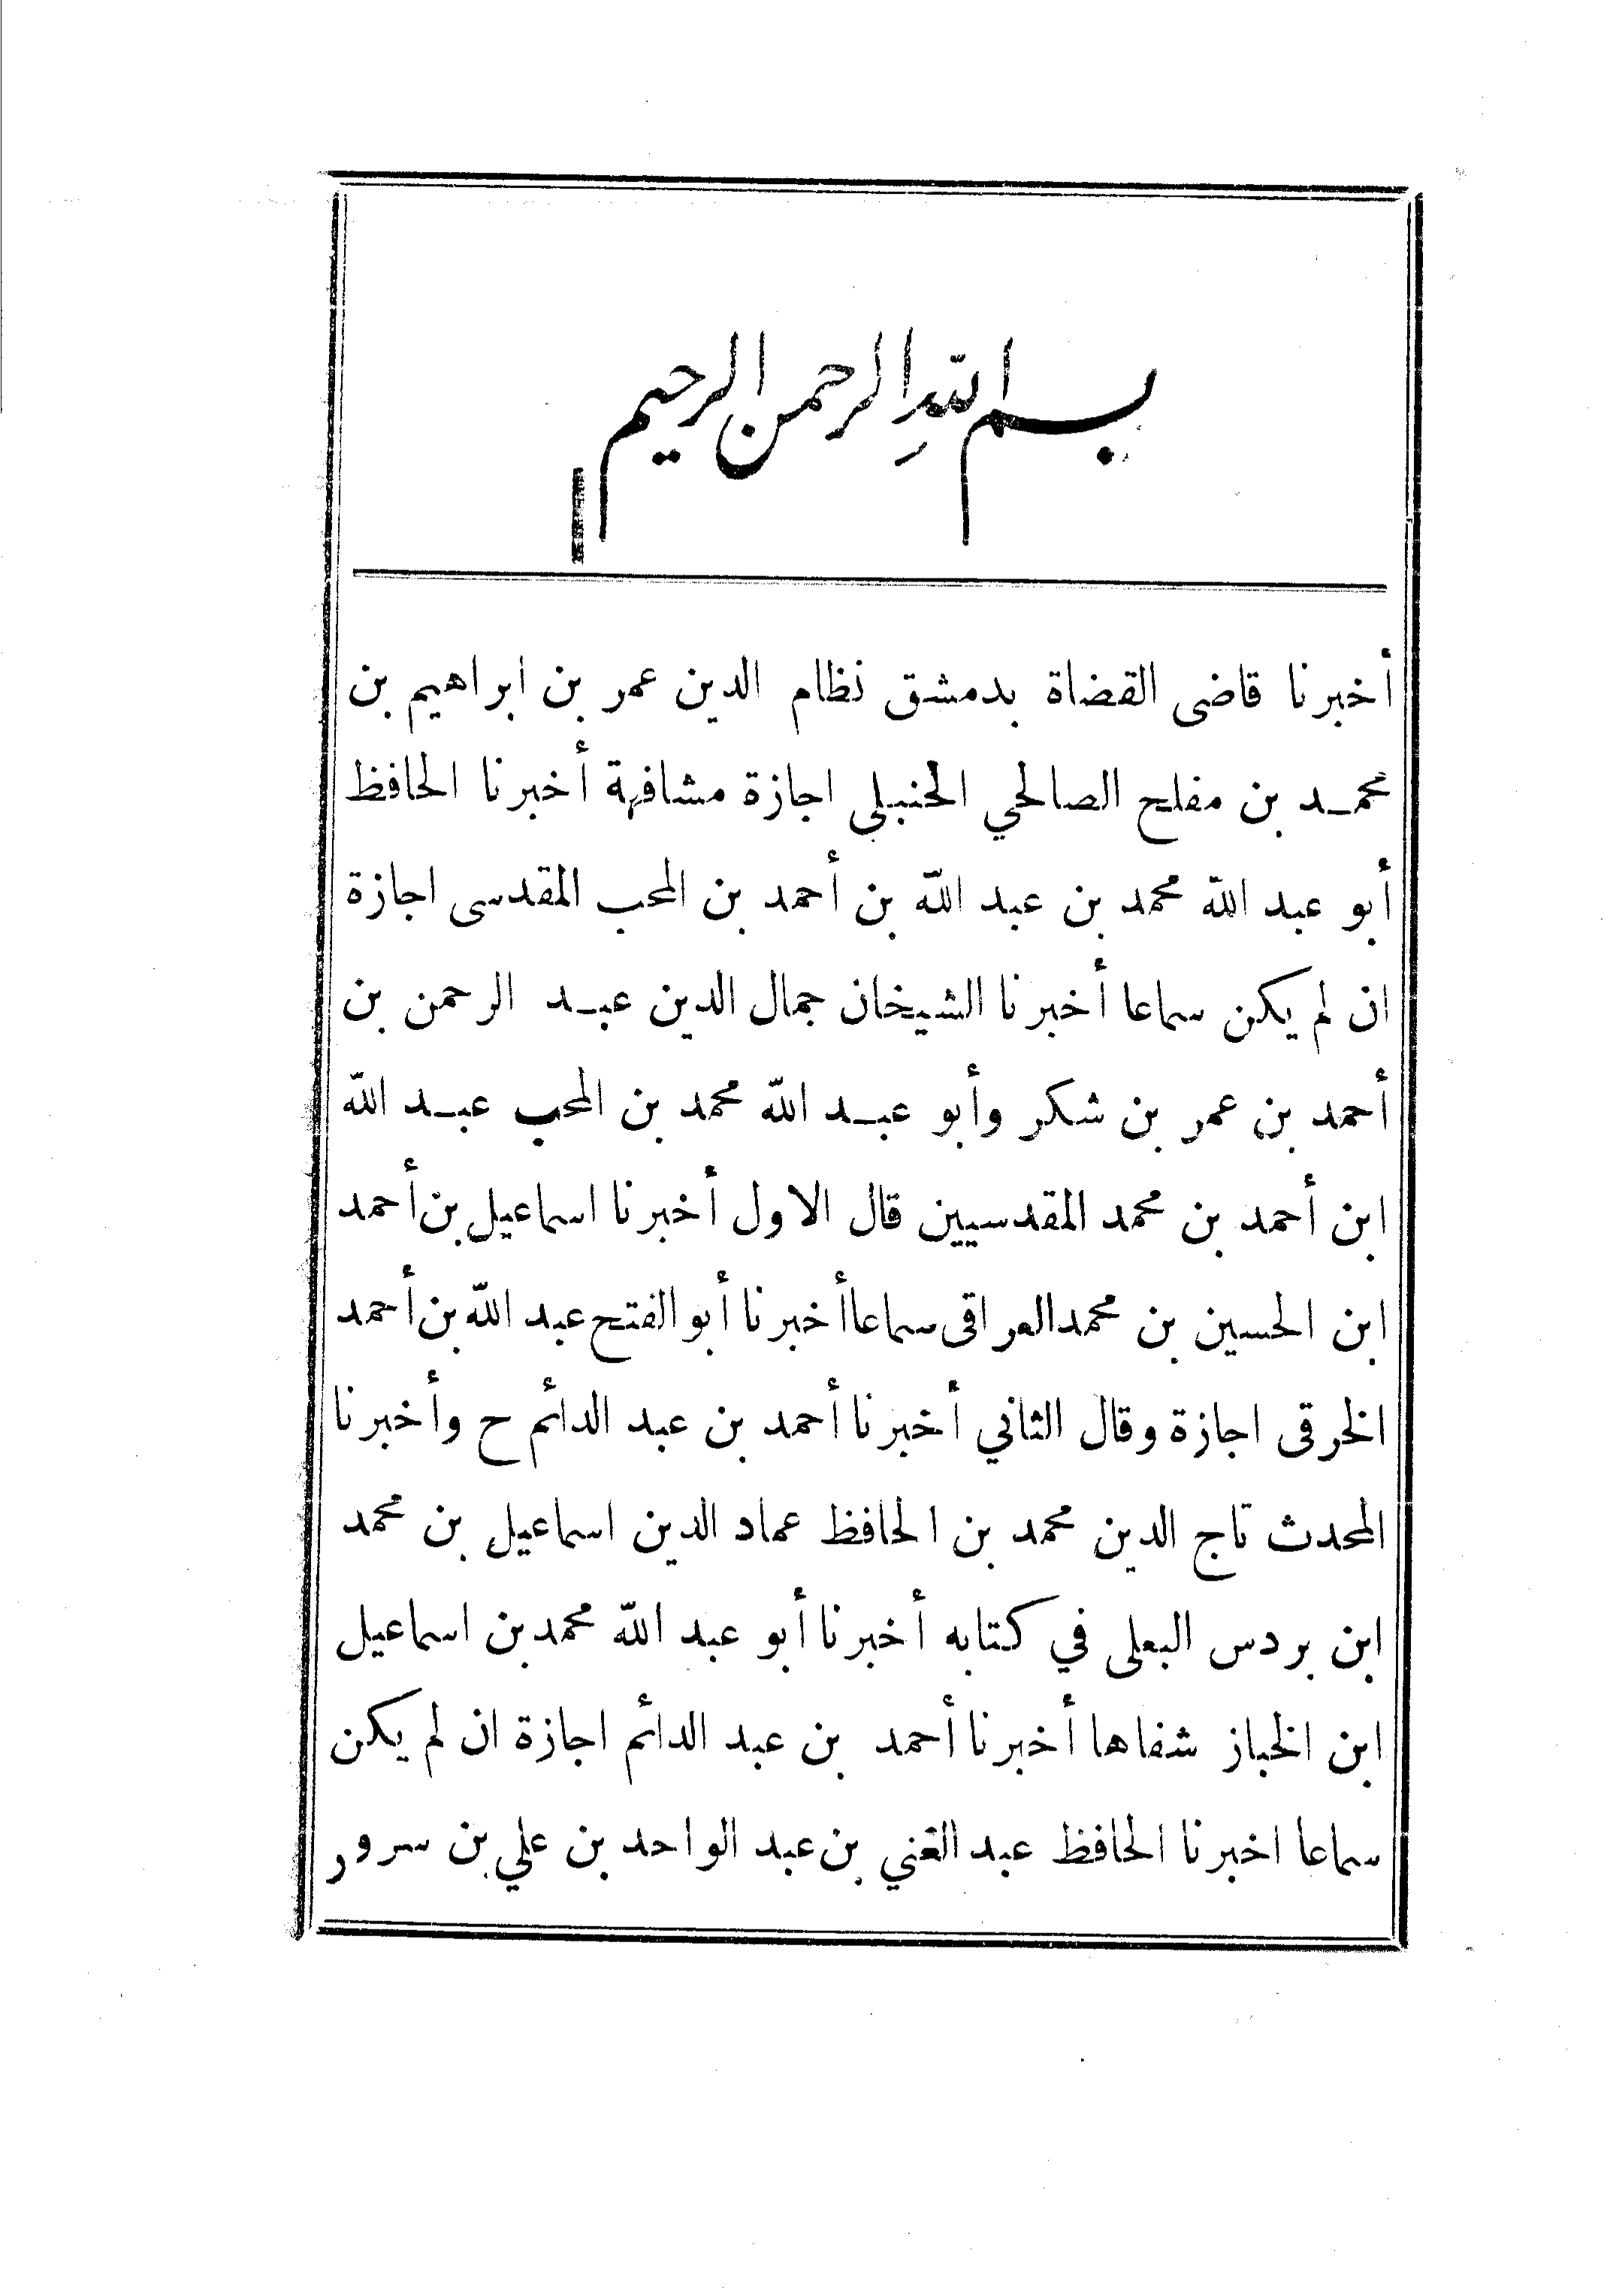 بسم اللهِ الرحمن الرحيم
أخبرنا قاضى القضاة بدمشق نظام الدين عمر بن ابراهيم بن
محمـد بن مفلح الصالحي الحنبلى اجازة مشافهة أخبرنا الحافظ
أبو عبد الله محمد بن عبد الله بن أحمد بن المحب المقدسى اجازة
ان لم يكن سماعا أخبرنا الشيخان جمال الدين عبـد الرحمن بن
أحمد بن عمر بن شكر وأبو عبـد الله محمد بن المحب عبـد الله
ابن أحمد بن محمد المقدسيين قال الاول أخبرنا اسماعيل بن أحمد
ابن الحسين بن محمد العراقى سماعا أخبرنا أبو الفتح عبد الله بن أحمد
الخرقى اجازة وقال الثاني أخبرنا أحمد بن عبد الدائم ح وأخبرنا
المحدث تاج الدين محمد بن الحافظ عماد الدين اسماعيل بن محمد
ابن بردس البعلى في كتابه أخبرنا أبو عبد الله محمد بن اسماعيل
ابن الخباز شفاها أخبرنا أحمد بن عبد الدائم اجازة ان لم يكن
سماعا اخبرنا الحافظ عبد الغني بن عبد الواحد بن علي بن سرور